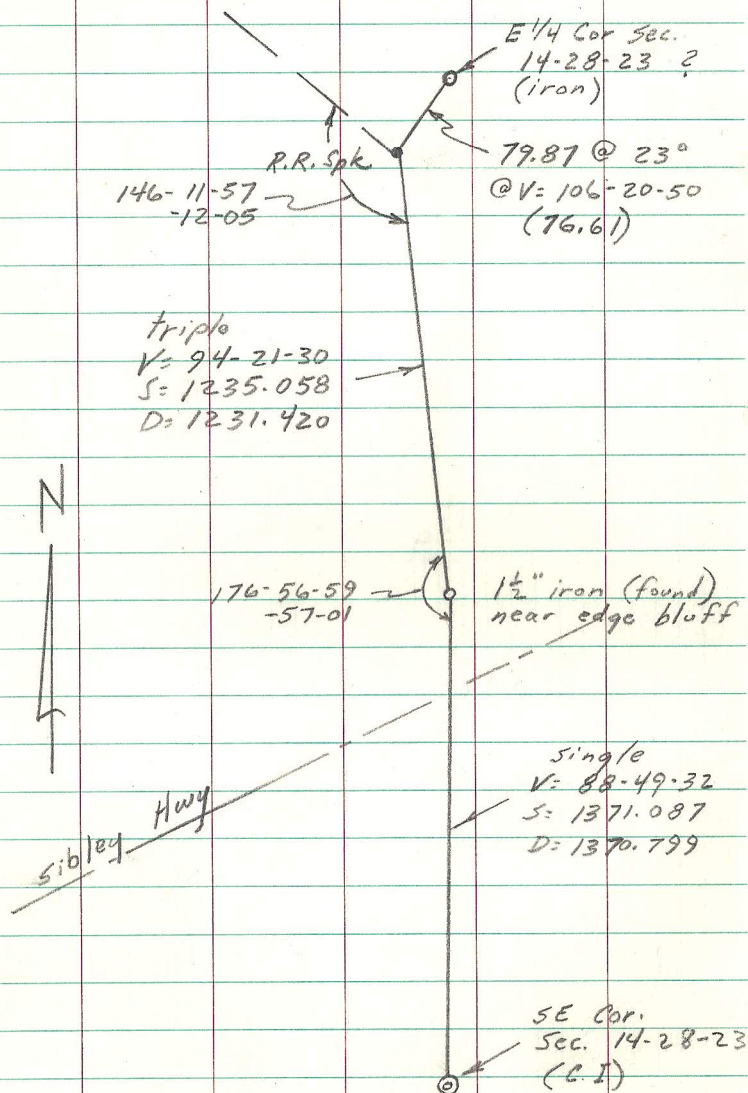 E 1/4 Cor Sec.
14-28-23 ?
(iron)
R.R. Spk.
79.87 @ 23°
@ V= 106-20-50
(76.61)
146-11-57
-12-05
triple
V= 94-21-30
S= 1235.058
D= 1231.420
N
176-56-59
-57-01
1 1/2" iron (found)
near edge bluff
single
V= 88-49-32
S= 1371.087
D= 1370.799
Sibley Hwy
SE Cor.
Sec. 14-28-23
(C.I)